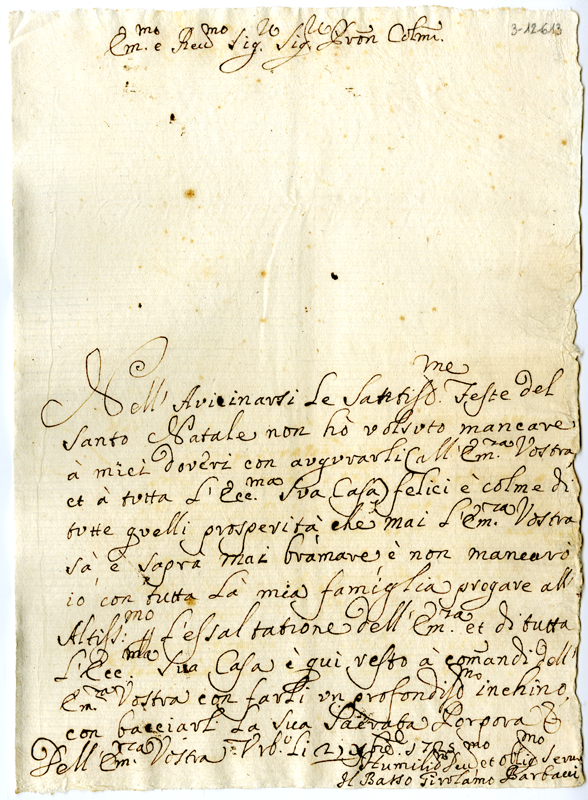 3-12-613
Em.mo e Reu.mo Sig.re Sig.re Pron Colmo.
Nell' Avicinarsi Le Santiss.me Feste del
Santo Natale non hò volsuto mancare
à miei doveri con augurarli (all' Em.za Vostra,
et à tutta L'Ecc.ma Sua Casa) felici è colme di
tutte quelli prosperità che mai L'Em.za Vostra
sà è saprà mai bramare è non mancarò
io con tutta La mia famiglia pregare all'
Altiss:mo p l'essaltatione dell' Em.za et di tutta
L'Ecc.ma Sua Casa è qui resto à comandi dell'
Em.za Vostra con farli un profondiss.mo inchino,
con bacciarli La sua Sacrata Porpora &
Dell' Em.za Vostra Urb.o Li
Humiliss.mo et
Il Basso Girolamo Barbacci